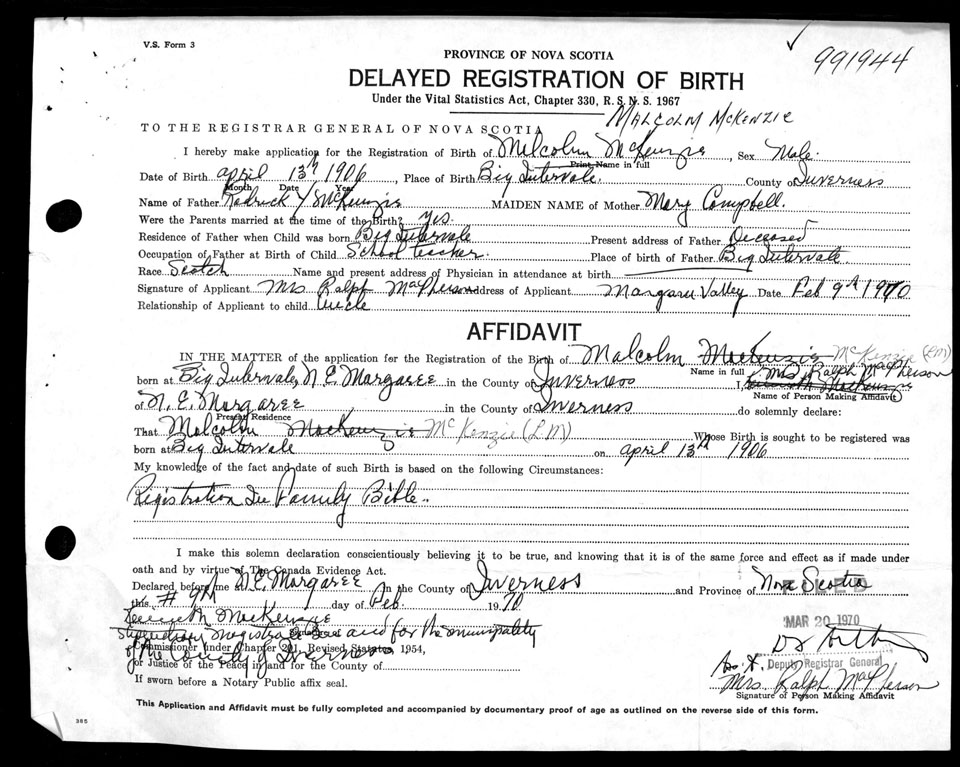 V.S. Form 3
991944
PROVINCE OF NOVA SCOTIA
DELAYED REGISTRATION OF BIRTH
Under the Vital Statistics Act, Chapter 330, R. S. N. S. 1967
MALCOLM MCKENZIE
TO THE REGISTRAR GENERAL OF NOVA SCOTIA
I hereby make application for the Registration of Birth of Melcolm McKenzie, Sex Male.
Print Name in full
Date of Birth april 13th 1906, Place of Birth Big Intervale. County of Inverness
Month Date Year
Name of Father Rodrick Y McKenzie MAIDEN NAME of Mother Mary Campbell.
Were the Parents married at the time of the Birth? Yes.
Residence of Father when Child was born Big Intervale Present address of Father Deceased
Occupation of Father at Birth of Child School teacher. Place of birth of Father Big Intervale
Race Scotch Name and present address of Physician in attendance at birth
Signature of Applicant Mrs Ralph MacPherson Address of Applicant Margaree Valley Date Feb 9th 1970
Relationship of Applicant to child Uncle
AFFIDAVIT
IN THE MATTER of the application for the Registration of the Birth of Malcolm Mackenzie McKenzie (LM)
Name in full Mrs Ralph MacPherson
born at Big Intervale, N E. Margaree in the County of Inverness I, Kenneth Mackenzie
Name of Person Making Affidavit
of N. E. Margaree in the County of Inverness do solemnly declare:
Present Residence
That Malcolm Mackenzie McKenzie (LM) Whose Birth is sought to be registered was
born at Big Intervale on april 13th 1906
My knowledge of the fact and date of such Birth is based on the following Circumstances:
Registration In Family Bible.
I make this solemn declaration conscientiously believing it to be true, and knowing that it is of the same force and effect as if made under
oath and by virtue of The Canada Evidence Act.
Declared before me at N.E. Margaree in the County of Inverness and Province of Nova Scotia
this 9th day of Feb. 1970
FILED
Kenneth MacKenzie
MAR 20 1970
Stipendiary magistrate in and for the municipality
Commissioner under Chapter 201, Revised Statutes, 1954,
of the County of Inverness
or Justice of the Peace in and for the County of
Deputy Registrar General
If sworn before a Notary Public affix seal.
Mrs. Ralph MacPherson
Signature of Person Making Affidavit
This Application and Affidavit must be fully completed and accompanied by documentary proof of age as outlined on the reverse side of this form.
385